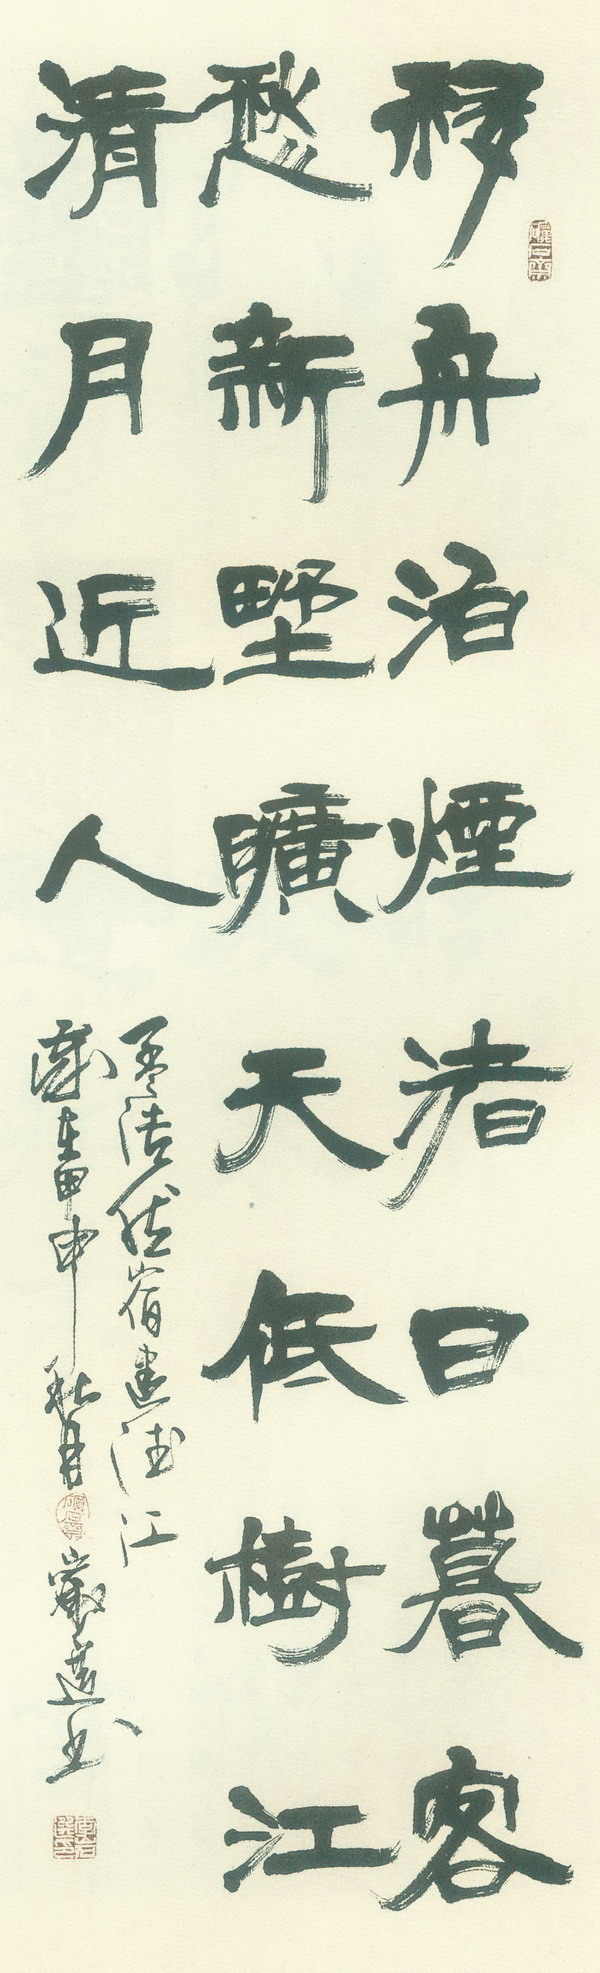 移舟泊煙渚日暮客
愁新野曠天低樹江
清月近人
孟浩然宿建德江
歲在甲申秋月 嚴選書